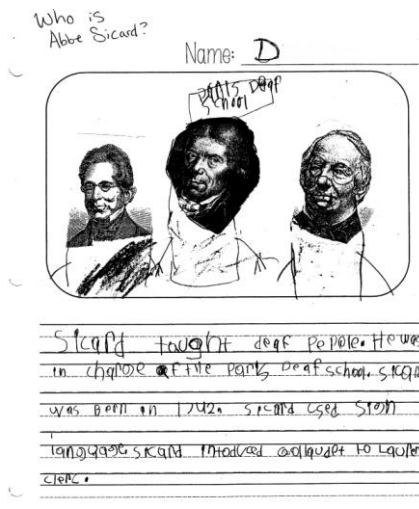 Who is
Abbe Sicard?
Name: D
Paris Deaf
School
Sicard taught deaf people. He was
in charge of the Paris Deaf school. Sicard
was Born in 1742. Sicard used Sign
language Sicard introduced Gallaudet to Laurent
clerc.